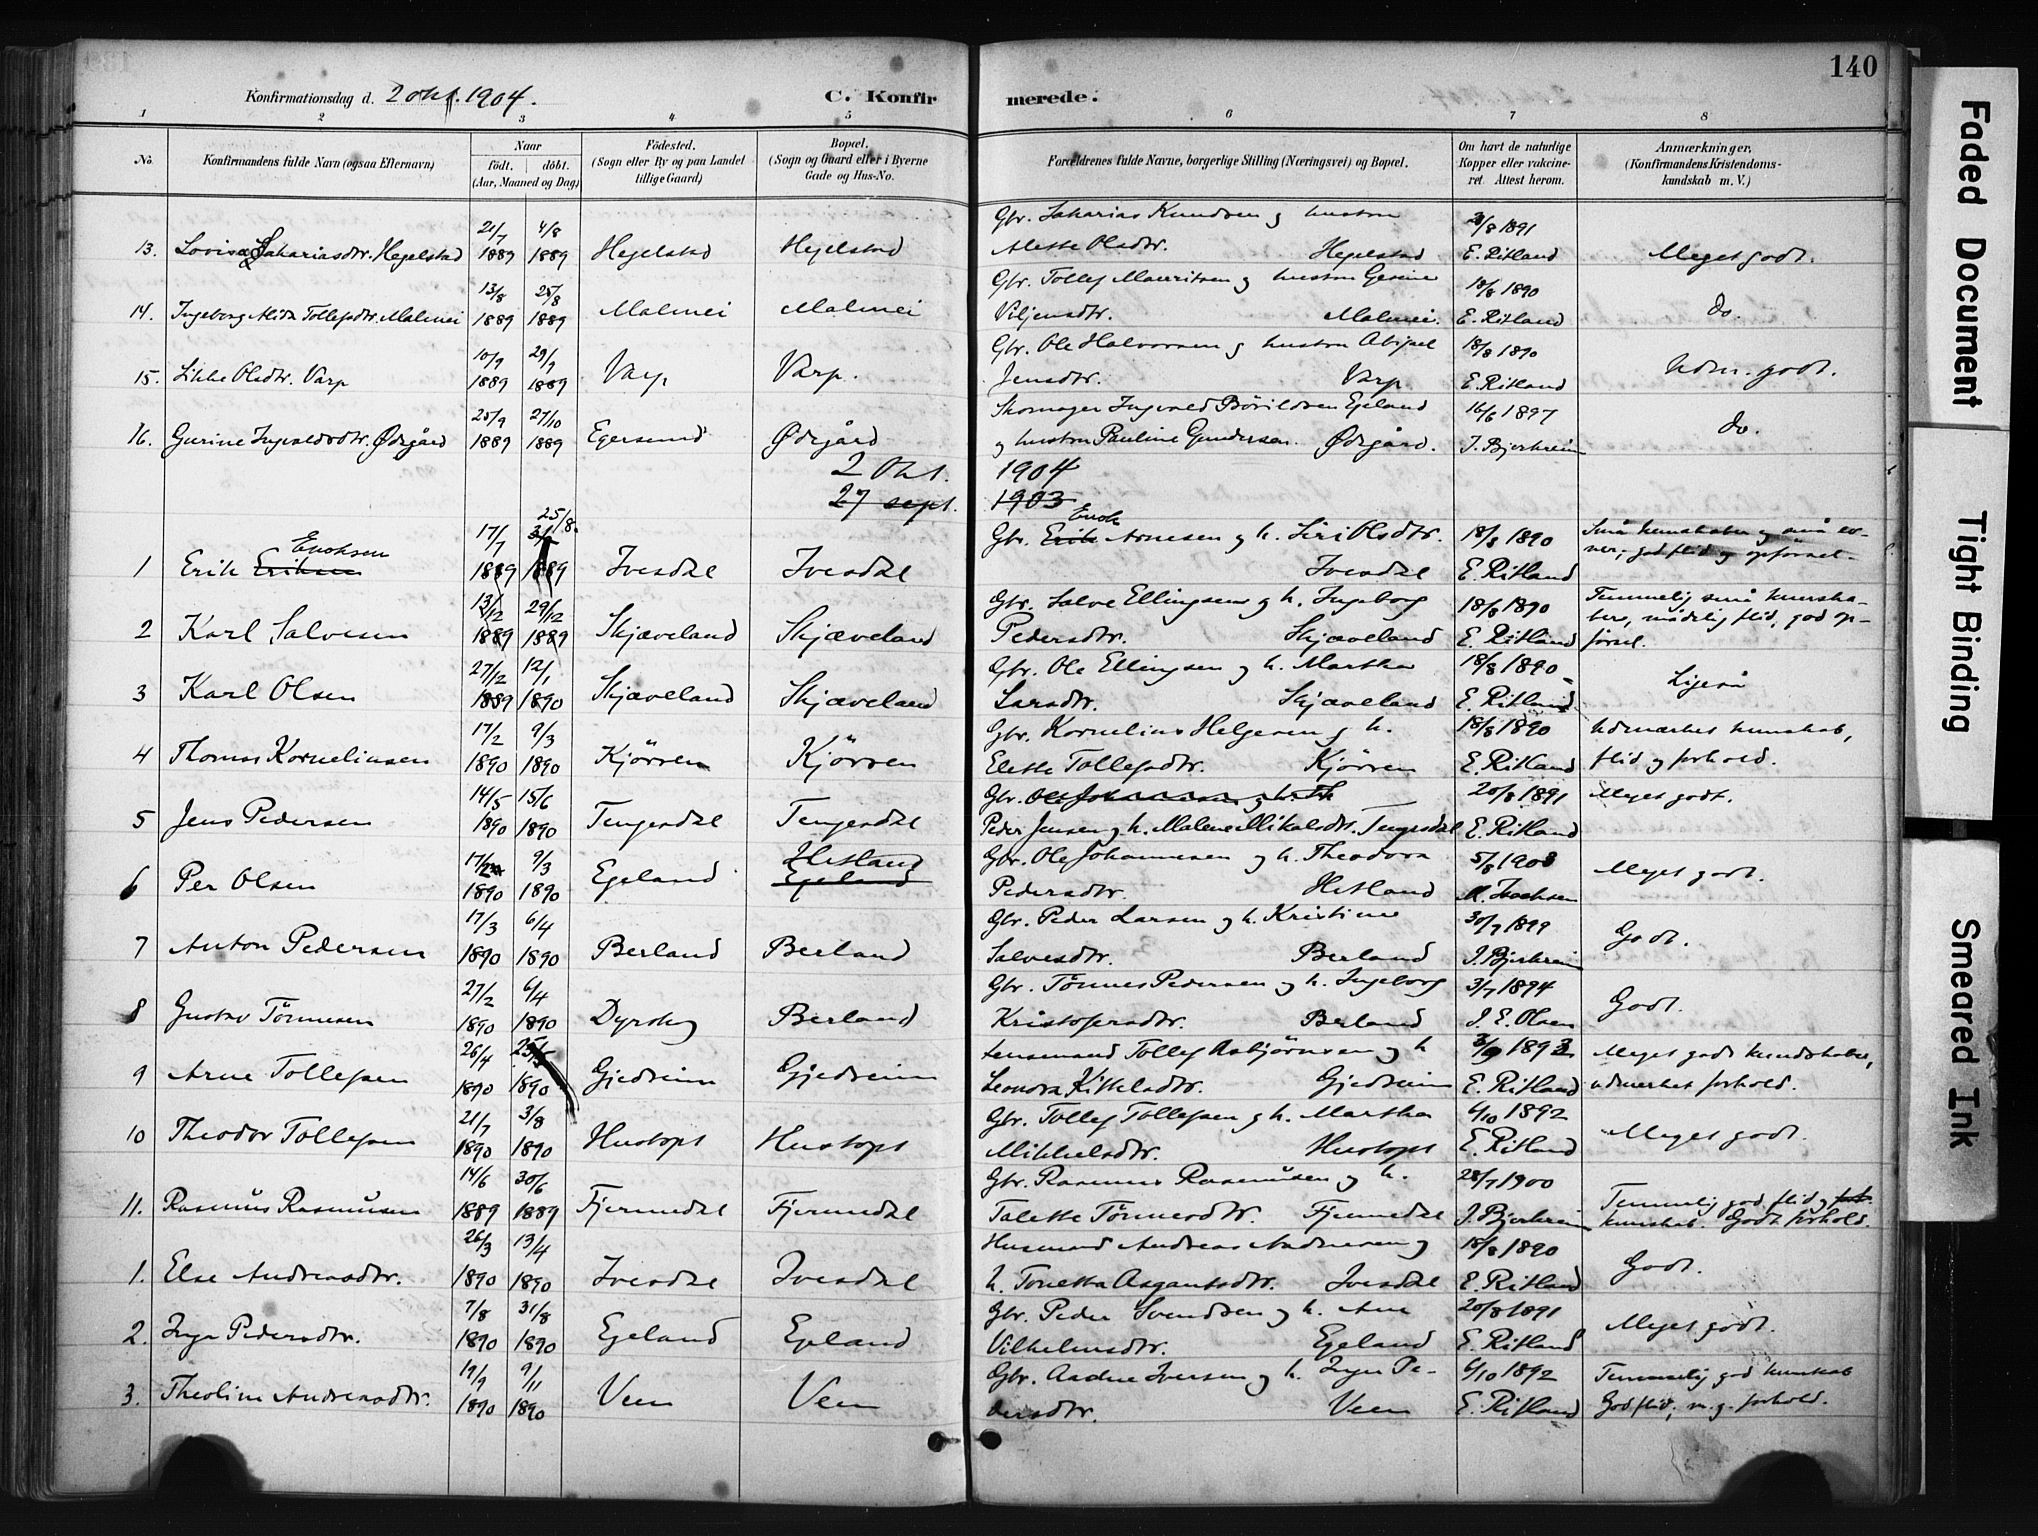 140
Konfirmationsdag d. 2 okt. 1904.
C. Konfirmerede.
1 2 3 4 5 6 7 8
No.
Konfirmandens fulde Navn (ogsaa Efternavn)
Naar
født. døbt.
(Aar, Maaned og Dag)
Fødested.
(Sogn eller By og paa Landet
tillige Gaard)
Bopæl.
(Sogn og Gaard eller i Byerne
Gade og Hus-No.
Forældrenes fulde Navne, borgerlige Stilling (Næringsvei) og Bopæl.
Om havt de naturlige
Kopper eller vakcine-
ret. Attest herom.
Anmærkninger,
(Konfirmandens Kristendoms-
kundskab m. V.)
21/7 4/8 Gbr. Sakarias Knudsen og hustru 1891
13. Lovise Sakariasdtr. Hegelstad 1889 1889 Hegelstad Hegelstad Alette Olsdtr. Hegelstad E. Ritland Meget godt.
13/8 25/8 Gbr. Tollef Mauritsen og hustru Gesine 18/8 1890
14. Ingeborg Alida Tollefsdtr. Malmei 1889 1889 Malmei Malmei Viljensdtr. Malmei. E. Ritland do.
10/9 29/9 Gbr. Ole Halvorsen og hustru Abigel 18/8 1890
15. Sikke Olsdtr. Varp 1889 1889 Varp Varp. Jensdtr. Varp E. Ritland Udm. godt.
25/9 27/10 Skomager Ingvald Börildsen Egeland 16/6 1897
16. Gurine Ingvaldsdtr. Ødegård 1889 1889 Egersund Ødegård og hustru Pauline Gundersen. Ødegård. J. Bjerkreim do.
2 Okt. 1904
27 sept. 1903
25/8. Enok
17/7 Gbr. Erik Arnesen og h. Siri Olsdtr. 18/8 1890 Små kunskaber og små ev-
Enoksen
1 Erik Eriksen 1889 1889 Ivesdal Ivesdal Ivesdal E. Ritland ner, god flid og opförsel.
13/12 29/12 Gbr. Salve Ellingsen og h. Ingeborg 18/8 1890 Temmelig små kunska-
2 Karl Salvesen 1889 1889 Skjæveland Skjæveland Pedersdtr. Skjæveland E. Ritland ber, mådelig flid, god op-
försel.
27/12 12/1 Gbr. Ole Ellingsen og h. Martha 18/8 1890
3 Karl Olsen 1889 1890 Skjæveland Skjæveland Larsdtr. Skjæveland E. Ritland Ligeså
17/2 9/3 Gbr. Kornelius Helgesen og h. 18/8 1890 Udmærket kunskab,
4 Thomas Korneliusen 1890 1890 Kjörren Kjörren Elette Tollefsdtr. Kjörren E. Ritland flid og forhold.
14/5 15/6 Gbr. Ole Johannesen og h. Th 20/8 1891 Meget godt.
5 Jens Pedersen 1890 1890 Tengesdal Tengesdal Peder Jensen og h. Malene Mikalsdtr. Tengesdal E. Ritland
17/2 9/3 Hetland Gbr. Ole Johannesen og h. Theodora 5/8 1903
6 Per Olsen 1890 1890 Egeland Egeland Pedersdtr. Hetland Meget godt.
17/3 6/4 Gbr. Peder Larsen og h. Kristine 30/7 1899
7 Anton Pedersen 1890 1890 Berland Berland Salvesdtr. Berland J. Bjerkreim Godt.
27/2 6/4 Gbr. Tönnes Pedersen og h. Ingeborg 3/7 1894
8 Gustav Tönnesen 1890 1890 Dyrskog Berland Kristofersdtr. Berland J. E. Olsen Godt.
26/4 25/5 Lensmand Tollef Asbjörnsen og h 3/9 1893 Meget gode kundskaber,
9 Arne Tollefsen 1890 1890 Gjedreim Gjedreim Leonora Kittelsdtr. Gjedreim E. Ritland udmerket forhold.
21/7 3/8 Gbr. Tollef Tollefsen og h. Martha 6/10 1892
10 Theodor Tollefsen 1890 1890 Hustoft Hustoft Mikkelsdtr. Hustoft E. Ritland Meget godt.
14/6 30/6 Gbr. Rasmus Rasmusen og h. 28/7 1900
11. Rasmus Rasmusen 1889 1889 Fjermedal Fjermedal Talette Tönnesdtr. Fjermedal J. Bjerkreim Temmelig god flid og
kunskab. Godt forhold.
26/3 13/4 Husmand Andreas Andersen og 18/8 1890
1. Else Andreasdtr. 1890 1890 Ivesdal Ivesdal h. Tonetta Asgautsdtr. Ivesdal E. Ritland Godt.
7/8 31/8 Gbr. Peder Svendsen og h. Ane 20/8 1891
2. Inga Pedersdtr. 1890 1890 Egeland Egeland Vilhelmsdtr. Egeland E. Ritland Meget godt.
19/9 9/11 Gbr. Aadne Iversen og h. Inger Pe- 6/10 1892 Temmelig god kunskab
3. Theoline Andreasdtr. 1890 1890 Veen Veen dersdtr. Veen E. Ritland God flid, m. g. forhold.
Faded Document
Tight Binding
Smeared Ink